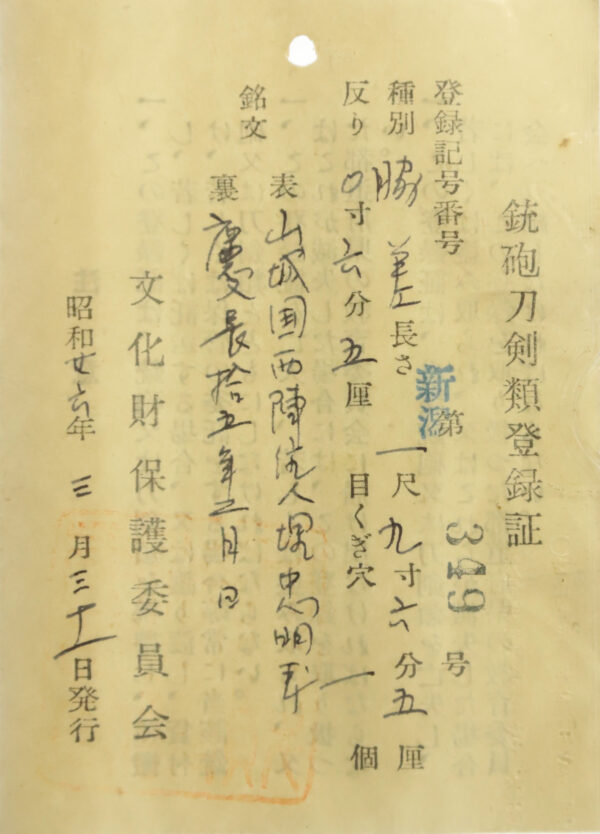 銃砲刀剣類登録証
登録記号番号 新潟 第 349 号
種別 脇差 長さ 一尺九寸六分五厘
反り 〇寸六分五厘 目くぎ穴 一個
銘文 表 山城国西陣住人埋忠明寿
裏 慶長拾五年二月日
文化財保護委員会
昭和廿六年三月三十一日発行